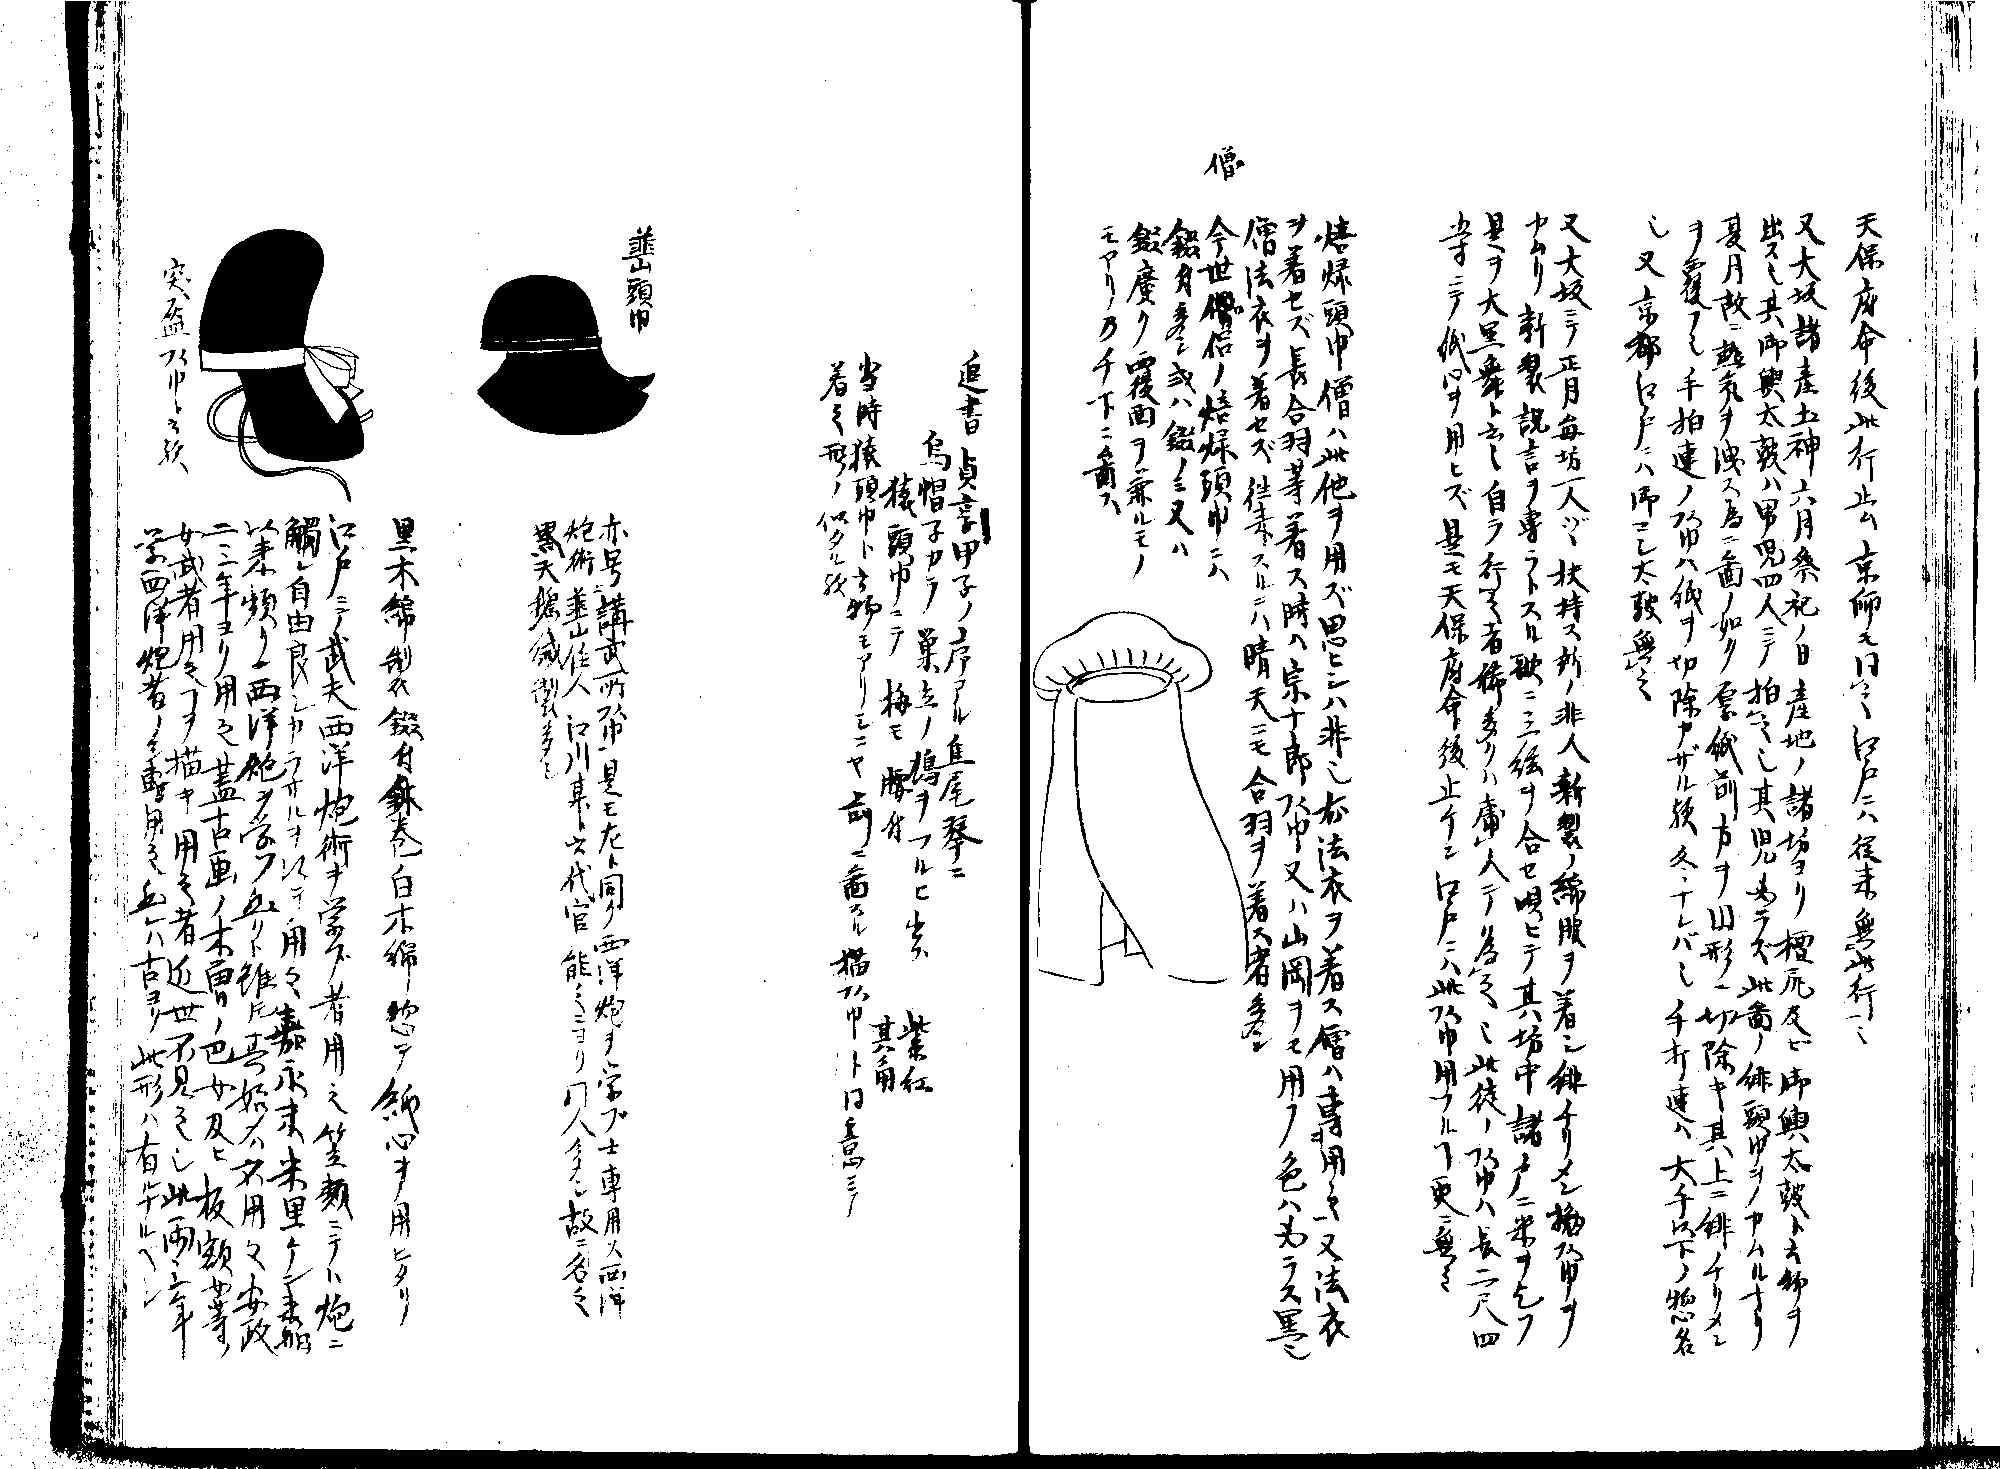 天保府命後此行止ム京師モ同之江戸ニハ従来無此行之
又大坂諸産土神六月祭祀ノ日産地ノ諸坊ヨリ檀尻及ビ御輿太鼓ト云物ヲ
出ス也其御輿太鼓ハ男児四人ニテ拍之也其児必ラズ此図ノ緋頭巾ヲカムルナリ
夏月故ニ熱気ヲ洩ス為ニ図ノ如ク厚紙前方ヲ山形ニ切除キ其上ニ緋チリメン
ヲ覆フ也手拍連ノ頭巾ハ紙ヲ切除カザル歟冬ナレバ也手打連ハ大手以下ノ惣名
也又京都江戸ニハ御コシ太鼓無之
又大坂ニテ正月毎坊一人ヅヽ扶持ス所ノ非人新製ノ綿服ヲ着シ緋チリメン投頭巾ヲ
カムリ新製祝言ヲ専ラトスル歌ニ三絃ヲ合セ唄ヒテ其坊中諸戸ニ米ヲ乞フ
是ヲ大黒舞ト云也自ラ行之者稀多クハ庸人テリ為之也此徒ノ頭巾ハ長二尺四
五寸ニテ紙心ヲ用ヒズ是モ天保府命後止ケシ江戸ニハ此頭巾用フルヿ更ニ無之
僧
焙烙頭巾僧ハ此他ヲ用ズ思ヒシハ非也故法衣ヲ着ス僧ハ専用之又法衣
ヲ着セズ長合羽等着ス時ハ宗十郎頭巾又ハ山岡ヲモ用フ色ハ必ラス黒也
僧法衣ヲ着セズ往来スルニハ晴天ニモ合羽ヲ着ス者多シ
今世僧俗ノ焙烙頭巾ニハ
錣有多シ或ハ錣ノミ又ハ
錣広ク覆面ヲ兼ルモノ
モアリ乃チ下ニ図ス
追書貞享甲子ノ序アル隹尾琴ニ
烏帽子カラ巣立ノ鳩ヲフルヒ出ス　紫紅
猿頭巾ニテ梅モ　其角
当時猿頭巾ト云物モアリシニヤ前ニ図スル猫頭巾ト同意ニテ
着之形ノ似タル歟
韮山頭巾
亦号ニ講武所頭巾是モ左ト同ク西洋炮ヲ学ブ士専用ス西洋
炮術韮山住人江川某ト云代官能之ニヨリ門人多シ故ニ名之
黒天鵞絨製多シ
突盔頭巾ト云歟
黒木綿製衣錣有鉢巻白木綿惣テ紙心ヲ用ヒタリ
江戸ニテ武夫西洋炮術ヲ学ブ者用之笠類ニテハ炮ニ
觸レ自由良シカラザルヲ以テ用之嘉永末米里ケン来舶
以来頻リニ西洋炮ヲ学フ士アリト雖ドモ其始メハ不用之安政
二三年ヨリ用之蓋古画ノ木曽ノ巴女及ヒ板額女等
女武者用之ヿヲ描キ用之者近世不見之也此両三年
学西洋炮者ノミ専用之兵士ハ古ヨリ此形ハ有ルナルベシ